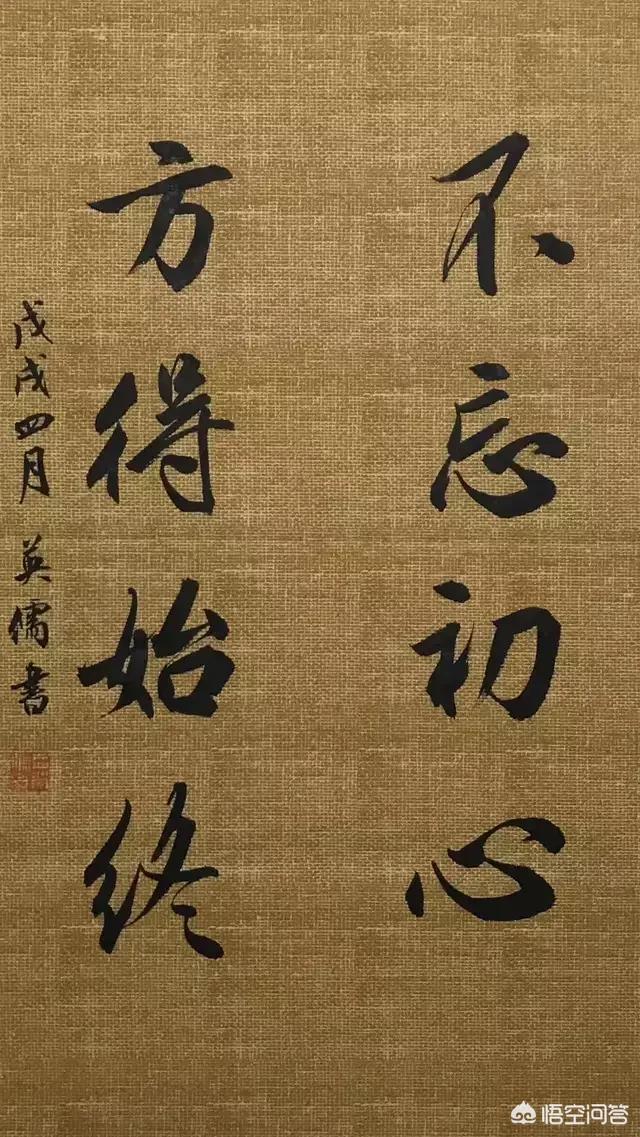 不忘初心
方得始终
戊戌四月英儒書
悟空问答